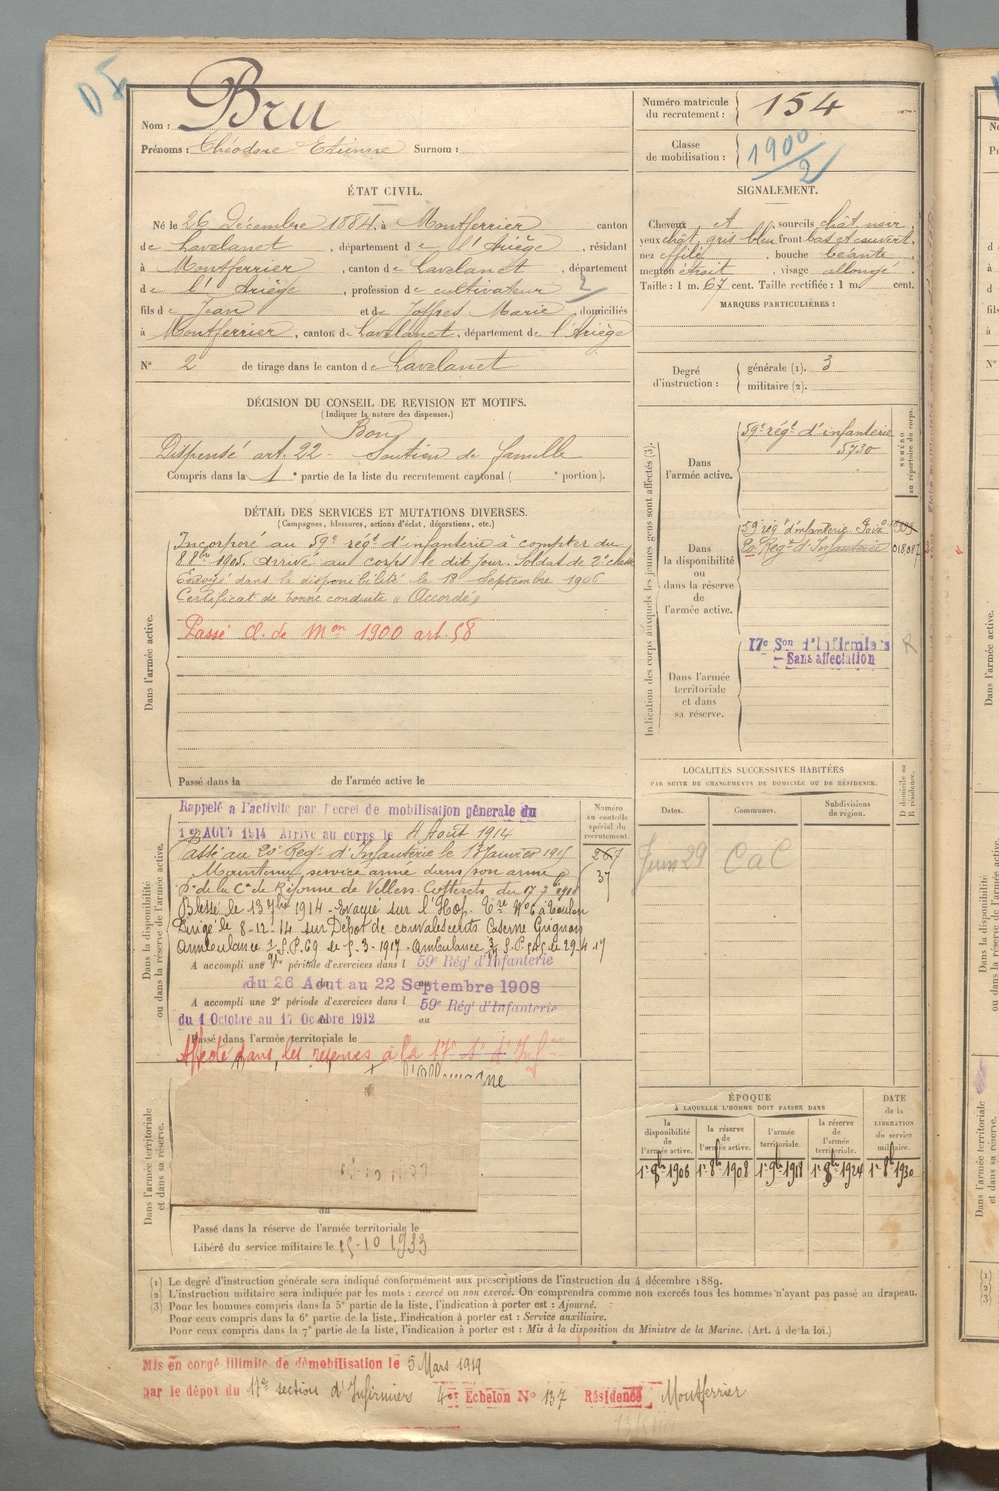 Nom : Bru
Prénoms : Théodore Etienne Surnom :
Numéro matricule du recrutement : 154
Classe de mobilisation : 1900/2
ÉTAT CIVIL.
Né le 26 Décembre 1884, à Montferrier canton
de Lavelanet, département de l'Ariège, résidant
à Montferrier, canton de Lavelanet, département
de l'Ariège, profession de cultivateur 2
fils de Jean et de Joffres Marie, domiciliés
à Montferrier, canton de Lavelanet, département de l'Ariège
N° 2 de tirage dans le canton de Lavelanet
SIGNALEMENT.
Cheveux et, sourcils chât noir,
yeux chât gris bleu front bas et couvert,
nez effilé, bouche béante,
menton étroit, visage allongé.
Taille : 1 m. 67 cent. Taille rectifiée : 1 m. cent.
MARQUES PARTICULIÈRES :
Degré d'instruction : générale (1). 3
militaire (2).
DÉCISION DU CONSEIL DE REVISION ET MOTIFS.
(Indiquer la nature des dispenses.)
Bon
Dispensé art. 22 - Soutien de famille
Compris dans la 1e partie de la liste du recrutement cantonal ( e portion).
DÉTAIL DES SERVICES ET MUTATIONS DIVERSES.
(Campagnes, blessures, actions d'éclat, décorations, etc.)
Dans l'armée active.
Incorporé au 59e régt d'infanterie à compter du
8 8bre 1905. Arrivé au corps le dit jour. Soldat de 2e classe
Envoyé dans la disponibilité le 18 Septembre 1906
Certificat de bonne conduite « Accordé »
Passé Cl. de Mon 1900 art. 58
Passé dans la de l'armée active le
Indication des corps auxquels les jeunes gens sont affectés (3).
NUMÉRO au répertoire du corps.
Dans l'armée active.
59e régt d'infanterie
5730
Dans la disponibilité ou dans la réserve de l'armée active.
59 régt d'infanterie Foix
20 Regt d'Infanterie
Dans l'armée territoriale et dans sa réserve.
17e Son d'Infirmiers
– Sans affectation
LOCALITÉS SUCCESSIVES HABITÉES
PAR SUITE DE CHANGEMENTS DE DOMICILE OU DE RÉSIDENCE.
Dates. Communes. Subdivisions de région. D domicile ou R résidence.
Juin 29 CaC
Dans la disponibilité ou dans la réserve de l'armée active.
Numéro au contrôle spécial du recrutement.
267
37
Rappelé a l'activité par Decret de mobilisation générale du
1er AOUT 1914 Arrivé au corps le 4 Août 1914
Passé au 20e Regt d'Infanterie le 13 Janvier 1915
Maintenu service armé dans son arme
de la Con de Réforme de Villers Cotterets du 17 7bre 1918
Blessé le 13 7bre 1914 - Evacué sur l'Hop. Tre N°6 à Toulon
Dirigé le 8-12-14 sur Dépot de convalescents Caserne Grignan
Ambulance
A accompli une 1re période d'exercices dans l 59e Régt d'Infanterie
du 26 Aout au 22 Septembre 1908
A accompli une 2e période d'exercices dans l 59e Régt d'Infanterie
du 1 Octobre au 17 Octobre 1912
Passé dans l'armée territoriale le
Affecté dans les réserves à la 17e
Dans l'armée territoriale et dans sa réserve.
Passé dans la réserve de l'armée territoriale le
Libéré du service militaire le 15-10 1933
ÉPOQUE
À LAQUELLE L'HOMME DOIT PASSER DANS
la disponibilité de l'armée active. la réserve de l'armée active. l'armée territoriale. la réserve de l'armée territoriale. DATE de la LIBÉRATION du service militaire.
1er 8bre 1906 1er 8bre 1908 1er 9bre 1918 1er 8bre 1924 1er 8bre 1930
(1) Le degré d'instruction générale sera indiqué conformément aux prescriptions de l'instruction du 4 décembre 1889.
(2) L'instruction militaire sera indiquée par les mots : exercé ou non exercé. On comprendra comme non exercés tous les hommes n'ayant pas passé au drapeau.
(3) Pour les hommes compris dans la 5e partie de la liste, l'indication à porter est : Ajourné.
Pour ceux compris dans la 6e partie de la liste, l'indication à porter est : Service auxiliaire.
Pour ceux compris dans la 7e partie de la liste, l'indication à porter est : Mis à la disposition du Ministre de la Marine. (Art. 4 de la loi.)
Mis en congé illimité de démobilisation le 5 Mars 1919
par le dépot du 17e section d'Infirmiers 4er Echelon N° 137 Résidence Montferrier